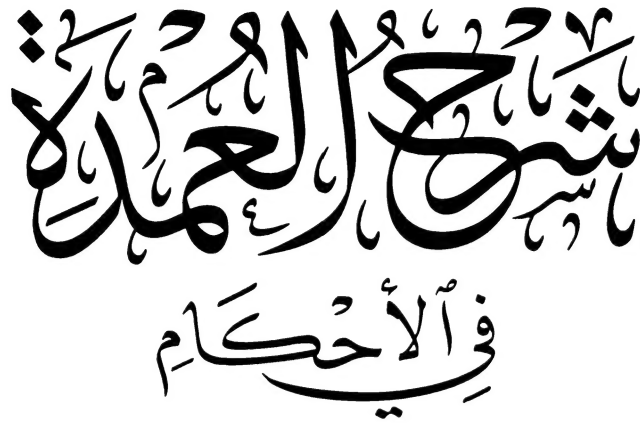 شرح العمدة
في ٱلأحكام